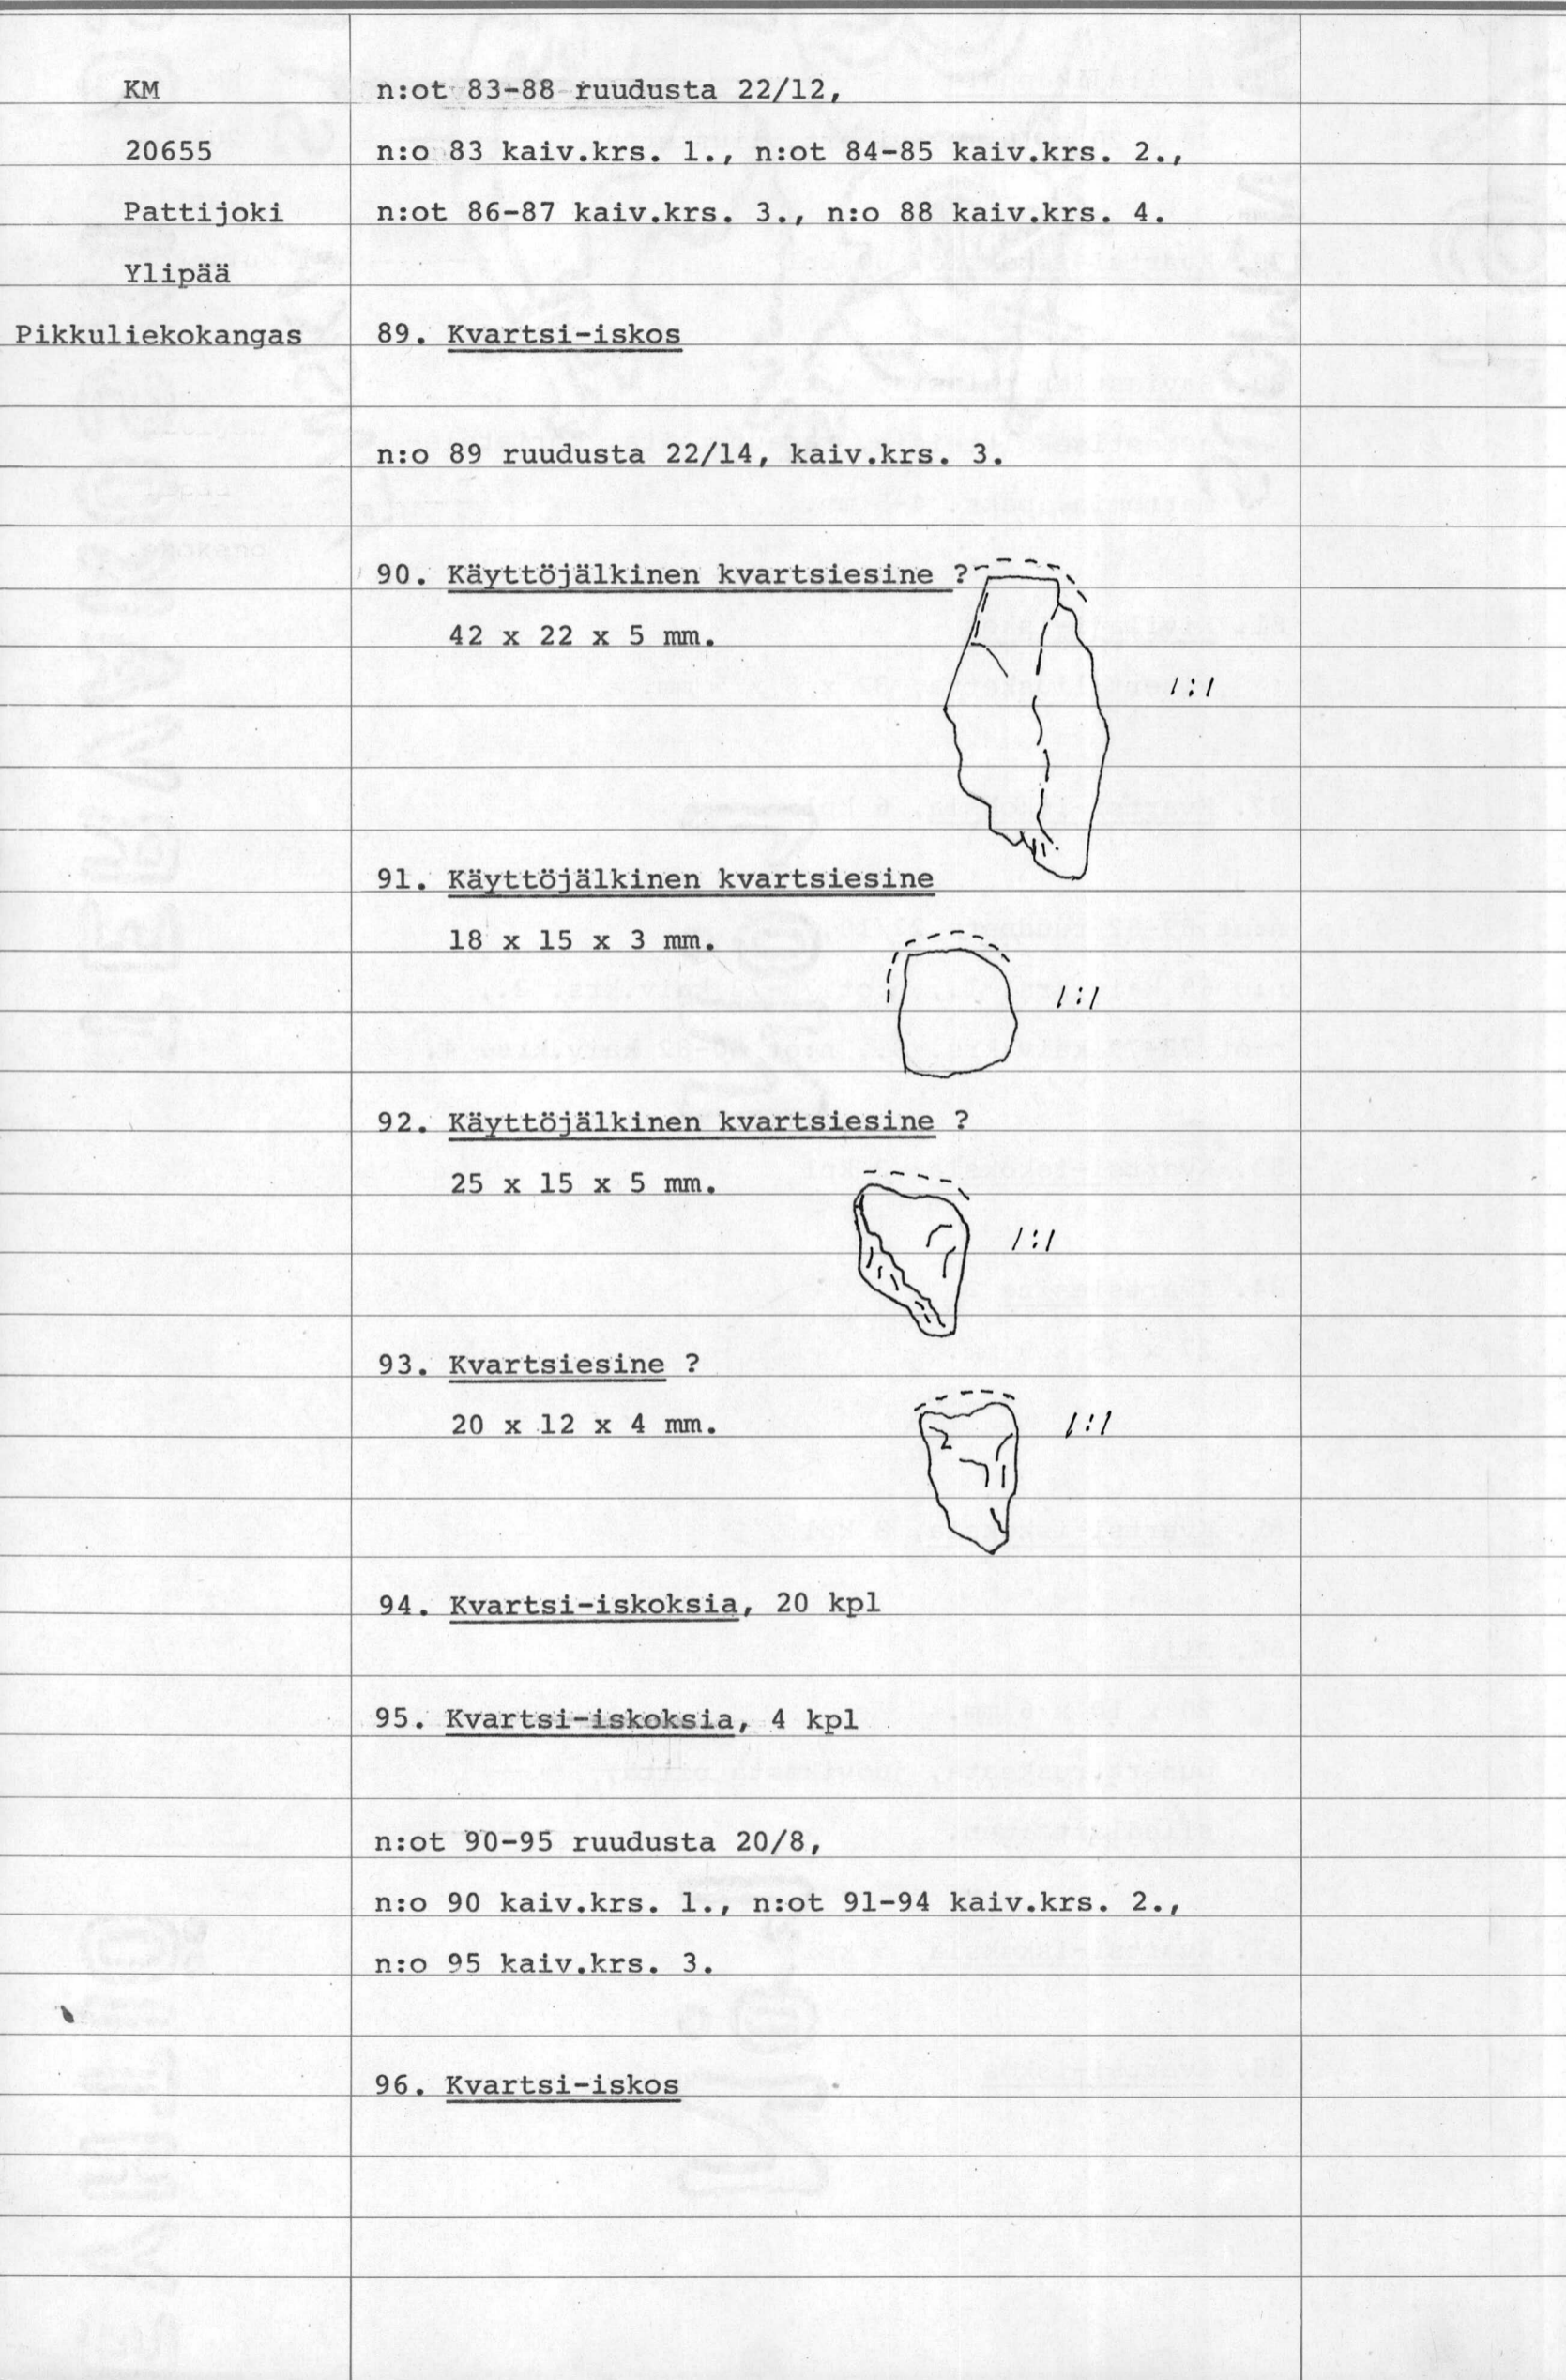 KM
20655
Pattijoki
Ylipää
Pikkuliekokangas
n:ot 83-88 ruudusta 22/12,
n:o 83 kaiv.krs. 1., n:ot 84-85 kaiv.krs. 2.,
n:ot 86-87 kaiv.krs. 3., n:o 88 kaiv.krs. 4.
89. Kvartsi-iskos
n:o 89 ruudusta 22/14, kaiv.krs. 3.
90. Käyttöjälkinen kvartsiesine ?
42 x 22 x 5 mm.
1:1
91. Käyttöjälkinen kvartsiesine
18 x 15 x 3 mm.
1:1
92. Käyttöjälkinen kvartsiesine ?
25 x 15 x 5 mm.
1:1
93. Kvartsiesine ?
20 x 12 x 4 mm.
1:1
94. Kvartsi-iskoksia, 20 kpl
95. Kvartsi-iskoksia, 4 kpl
n:ot 90-95 ruudusta 20/8,
n:o 90 kaiv.krs. 1., n:ot 91-94 kaiv.krs. 2.,
n:o 95 kaiv.krs. 3.
96. Kvartsi-iskos